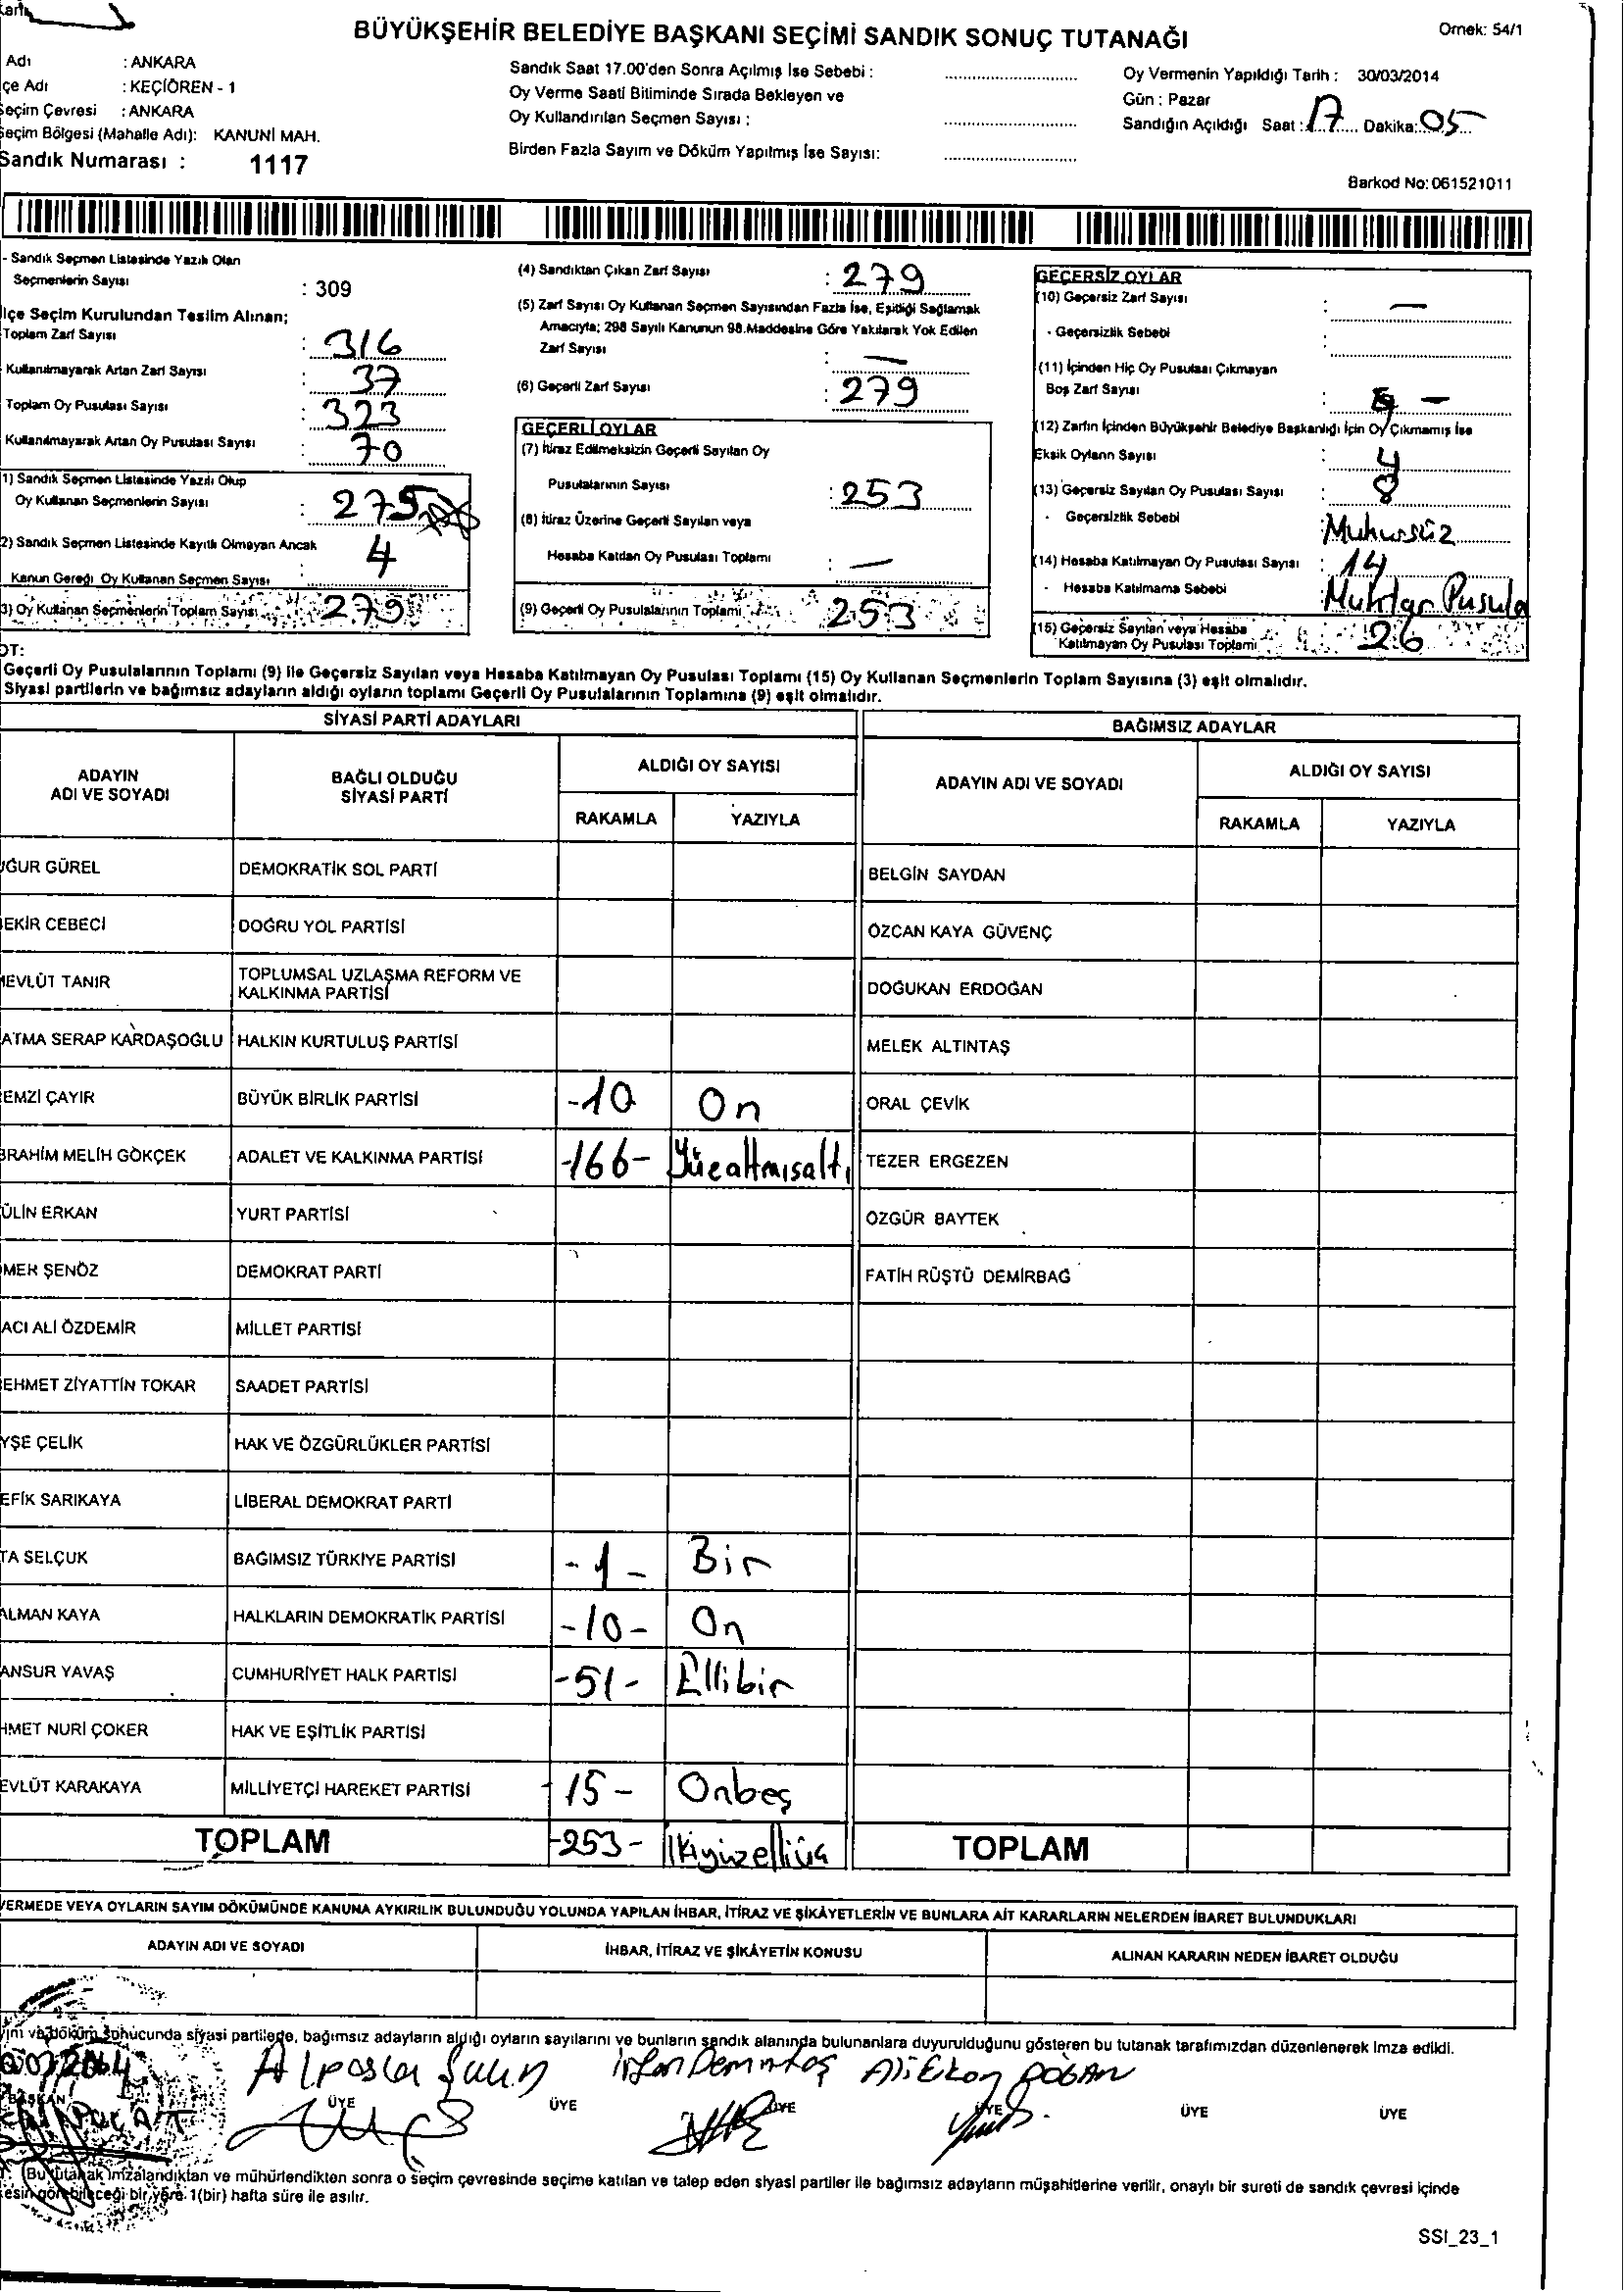 BÜYÜKŞEHİR BELEDİYE BAŞKANI SEÇİMİ SANDIK SONUÇ TUTANAĞI
Örnek: 54/1
Adı : ANKARA
çe Adı : KEÇİÖREN - 1
Seçim Çevresi : ANKARA
Seçim Bölgesi (Mahalle Adı): KANUNİ MAH.
Sandık Numarası : 1117
Sandık Saat 17.00'den Sonra Açılmış İse Sebebi :
Oy Verme Saati Bitiminde Sırada Bekleyen ve
Oy Kullandırılan Seçmen Sayısı :
Birden Fazla Sayım ve Döküm Yapılmış İse Sayısı:
Oy Vermenin Yapıldığı Tarih : 30/03/2014
Gün : Pazar
Sandığın Açıldığı Saat : 17 Dakika: 05
Barkod No: 061521011
- Sandık Seçmen Listesinde Yazılı Olan
Seçmenlerin Sayısı : 309
İlçe Seçim Kurulundan Teslim Alınan;
Toplam Zarf Sayısı : 316
Kullanılmayarak Artan Zarf Sayısı : 37
Toplam Oy Pusulası Sayısı : 323
Kullanılmayarak Artan Oy Pusulası Sayısı : 70
1) Sandık Seçmen Listesinde Yazılı Olup
Oy Kullanan Seçmenlerin Sayısı : 275
2) Sandık Seçmen Listesinde Kayıtlı Olmayan Ancak
Kanun Gereği Oy Kullanan Seçmen Sayısı : 4
3) Oy Kullanan Seçmenlerin Toplam Sayısı : 279
(4) Sandıktan Çıkan Zarf Sayısı : 279
(5) Zarf Sayısı Oy Kullanan Seçmen Sayısından Fazla İse, Eşitliği Sağlamak
Amacıyla; 298 Sayılı Kanunun 98.Maddesine Göre Yakılarak Yok Edilen
Zarf Sayısı : —
(6) Geçerli Zarf Sayısı : 279
GEÇERLİ OYLAR
(7) İtiraz Edilmeksizin Geçerli Sayılan Oy
Pusulalarının Sayısı : 253
(8) İtiraz Üzerine Geçerli Sayılan veya
Hesaba Katılan Oy Pusulası Toplamı : —
(9) Geçerli Oy Pusulalarının Toplamı : 253
GEÇERSİZ OYLAR
(10) Geçersiz Zarf Sayısı : —
- Geçersizlik Sebebi :
(11) İçinden Hiç Oy Pusulası Çıkmayan
Boş Zarf Sayısı : -
(12) Zarfın İçinden Büyükşehir Belediye Başkanlığı İçin Oy Çıkmamış İse
Eksik Oyların Sayısı : 4
(13) Geçersiz Sayılan Oy Pusulası Sayısı : 8
- Geçersizlik Sebebi : Muhursüz
(14) Hesaba Katılmayan Oy Pusulası Sayısı : 14
- Hesaba Katılmama Sebebi Muhtar Pusula
(15) Geçersiz Sayılan veya Hesaba
Katılmayan Oy Pusulası Toplamı : 26
OT:
Geçerli Oy Pusulalarının Toplamı (9) ile Geçersiz Sayılan veya Hesaba Katılmayan Oy Pusulası Toplamı (15) Oy Kullanan Seçmenlerin Toplam Sayısına (3) eşit olmalıdır.
Siyasi partilerin ve bağımsız adayların aldığı oyların toplamı Geçerli Oy Pusulalarının Toplamına (9) eşit olmalıdır.
SİYASİ PARTİ ADAYLARI
BAĞIMSIZ ADAYLAR
ADAYIN ADI VE SOYADI
BAĞLI OLDUĞU SİYASİ PARTİ
ALDIĞI OY SAYISI
RAKAMLA YAZIYLA
ADAYIN ADI VE SOYADI
ALDIĞI OY SAYISI
RAKAMLA YAZIYLA
ĞUR GÜREL DEMOKRATİK SOL PARTİ BELGİN SAYDAN
EKİR CEBECİ DOĞRU YOL PARTİSİ ÖZCAN KAYA GÜVENÇ
MEVLÜT TANIR TOPLUMSAL UZLAŞMA REFORM VE KALKINMA PARTİSİ DOĞUKAN ERDOĞAN
ATMA SERAP KARDAŞOĞLU HALKIN KURTULUŞ PARTİSİ MELEK ALTINTAŞ
EMZİ ÇAYIR BÜYÜK BİRLİK PARTİSİ -10 On ORAL ÇEVİK
BRAHİM MELİH GÖKÇEK ADALET VE KALKINMA PARTİSİ -166- Yüzaltmısaltı TEZER ERGEZEN
ÜLİN ERKAN YURT PARTİSİ ÖZGÜR BAYTEK
MER ŞENÖZ DEMOKRAT PARTİ FATİH RÜŞTÜ DEMİRBAĞ
ACI ALİ ÖZDEMİR MİLLET PARTİSİ
EHMET ZİYATTİN TOKAR SAADET PARTİSİ
YŞE ÇELİK HAK VE ÖZGÜRLÜKLER PARTİSİ
EFİK SARIKAYA LİBERAL DEMOKRAT PARTİ
TA SELÇUK BAĞIMSIZ TÜRKİYE PARTİSİ -1- Bir
ALMAN KAYA HALKLARIN DEMOKRATİK PARTİSİ -10- On
ANSUR YAVAŞ CUMHURİYET HALK PARTİSİ -51- Ellibir
HMET NURİ ÇOKER HAK VE EŞİTLİK PARTİSİ
EVLÜT KARAKAYA MİLLİYETÇİ HAREKET PARTİSİ -15- Onbeş
TOPLAM -253- İkiyüzelliüç TOPLAM
VERMEDE VEYA OYLARIN SAYIM DÖKÜMÜNDE KANUNA AYKIRILIK BULUNDUĞU YOLUNDA YAPILAN İHBAR, İTİRAZ VE ŞİKÂYETLERİN VE BUNLARA AİT KARARLARIN NELERDEN İBARET BULUNDUKLARI
ADAYIN ADI VE SOYADI İHBAR, İTİRAZ VE ŞİKÂYETİN KONUSU ALINAN KARARIN NEDEN İBARET OLDUĞU
yım ve döküm sonucunda siyasi partilere, bağımsız adayların aldığı oyların sayılarını ve bunların sandık alanında bulunanlara duyurulduğunu gösteren bu tutanak tarafımızdan düzenlenerek imza edildi.
Alpaslan Şahin İrfan Demirtaş Ali Ekber DOĞAN
BAŞKAN ÜYE ÜYE ÜYE ÜYE ÜYE ÜYE
(Bu tutanak imzalandıktan ve mühürlendikten sonra o seçim çevresinde seçime katılan ve talep eden siyasi partiler ile bağımsız adayların müşahitlerine verilir, onaylı bir sureti de sandık çevresi içinde
esin görebileceği bir yere 1(bir) hafta süre ile asılır.
SSI_23_1